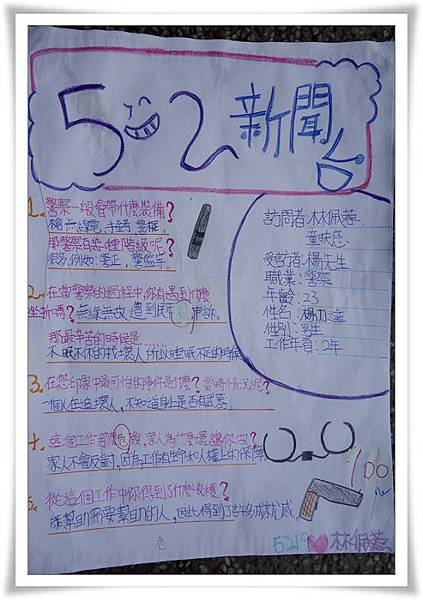 502 新聞台
1. 警察一般會帶什麼裝備?
槍、無線電、手銬、警棍。
那警察有哪裡階級呢?
很多,例如:警正、警監等。
2. 在當警察的過程中,你有遇到什麼
挫折嗎?無緣無故遭到民眾申訴。
那最辛苦的時候是...
不眠不休的找壞人,所以睡眠不足的時候
3. 在您印象中最可怕的事件是什麼?當時情況呢?
一個人在追壞人,不知道身上是否有武器。
4. 這個工作那麼危險,家人為什麼還讓你做?
家人不會反對,因為工作有生命和人權上的保障
5. 從這個工作中你得到了什麼收穫?
幫助需要幫助的人,因此得到了許多成就感。
訪問者:林佩蓉
童映慈
受訪者:楊先生
職業:警察
年齡:23
姓名:楊
性別:男生
工作年資:2年
100
危
5219 林佩蓉